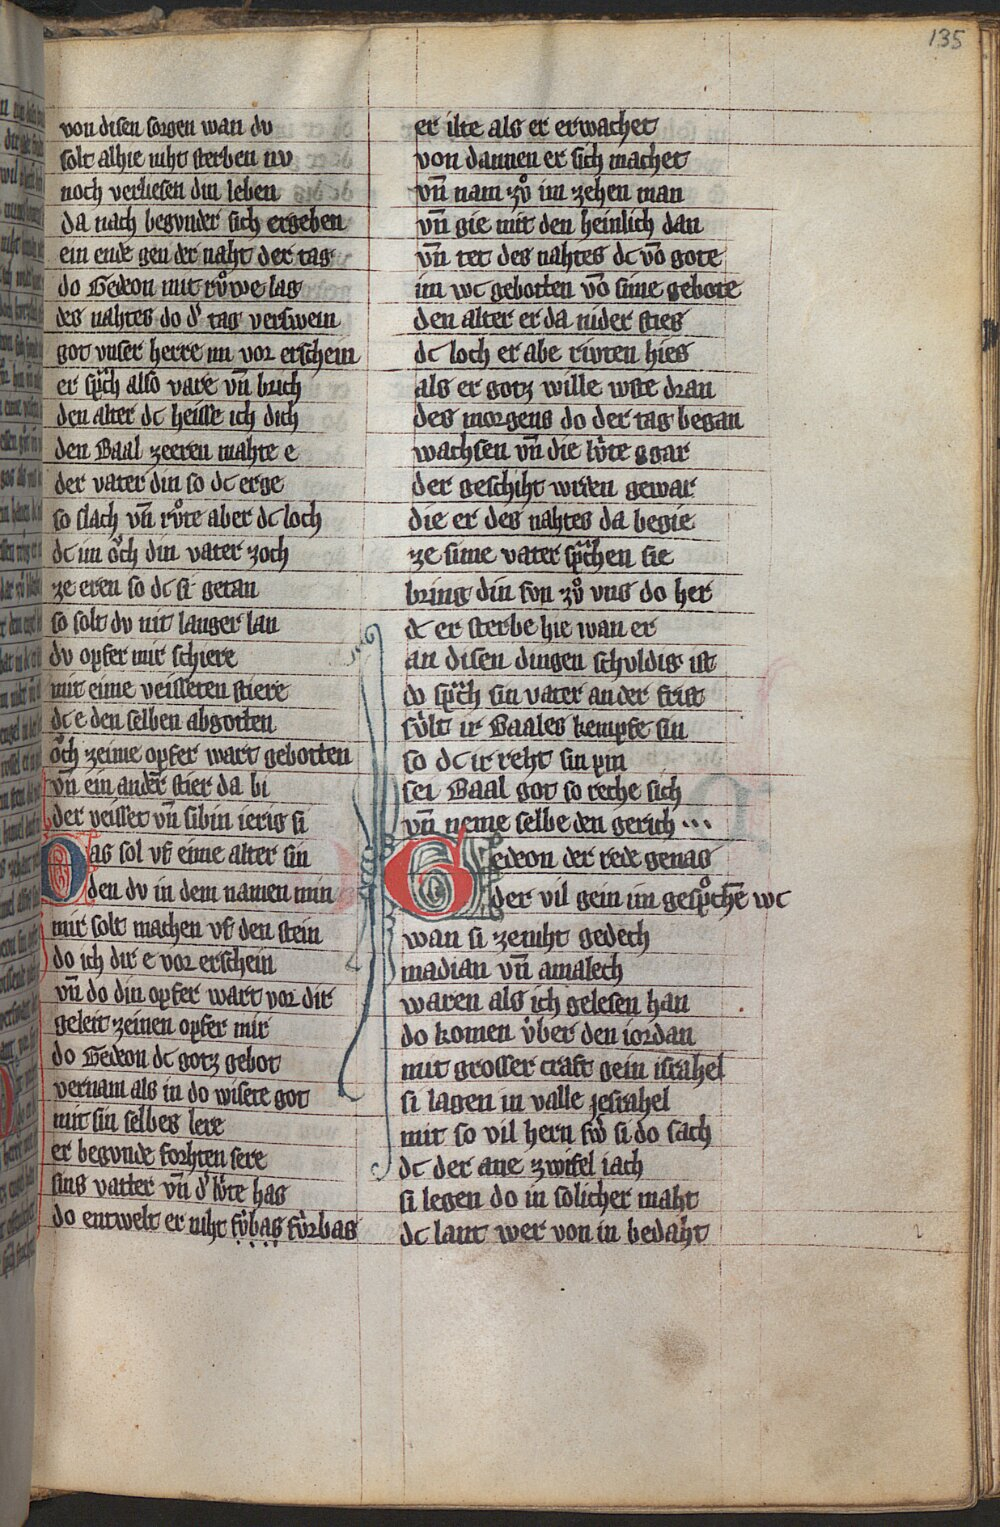 135
von disen sorgen wan dv
solt alhie niht sterben nv
noch verliesen din leben
da nach begvnder sich ergeben
ein ende gen der naht der tag
do Gedeon mit růwe lag
des nahtes do d' tag verswein
got vnser herre im vor erschein
er spͣch also vare vn̄ brich
den alter dc heisse ich dich
den Baal zeeren mahte e
der vater din so dc erge
so slach vn̄ růte aber dc loch
dc im ǒch din vater zoch
ze eren so dc si getan
so solt dv nit langer lan
dv opfer mir schiere
mit eime veisseten stiere
dc e den selben abgotten
ǒch zeime opfer wart gebotten
vn̄ ein ander stier da bi
der veisset vn̄ sibin ierig si
Das sol vf eime alter sin
den dv in dem namen min
mir solt machen vf den stein
do ich dir e vor erschein
vn̄ do din opfer wart vor dir
geleit zeinen opfer mir
do Gedeon dc gotz gebot
vernam als in do wisete got
mit sin selbes lere
er begvnde forhten sere
sins vatter vn̄ d' lv̍te has
do entwelt er niht fv̍bas fv̍rbas
er ilte als er erwachet
von dannen er sich machet
vn̄ nam zv̊ im zehen man
vn̄ gie mit den heinlich dan
vn̄ tet des nahtes dc vō gote
im wc gebotten vō sime gebote
den alter er da nider sties
dc loch er abe rivten hies
als er gotz wille wste dran
des morgens do der tag began
wachsen vn̄ die lv̍te ggar
der geschiht wrden gewar
die er des nahtes da begie
ze sime vater spͣchen sie
bring din svn zv̊ vns do her
dc er sterbe hie wan er
an disen dingen schvldig ist
do spͣch sin vater an der frist
sv̍lt ir Baales kempfe sin
so dc ir reht sin pin
sei Baal got so reche sich
vn̄ neme selbe den gerich ...
Gedeon der rede genas
der vil gein im gespͦchē wc
wan si zeniht gedech
madian vn̄ amalech
waren als ich gelesen han
do komen v̍ber den iordan
mit grosser craft gein israhel
si lagen in valle jesrahel
mit so vil hern sw̍ si do sach
dc der ane zwifel iach
si legen do in solicher maht
dc lant wer von in bedaht